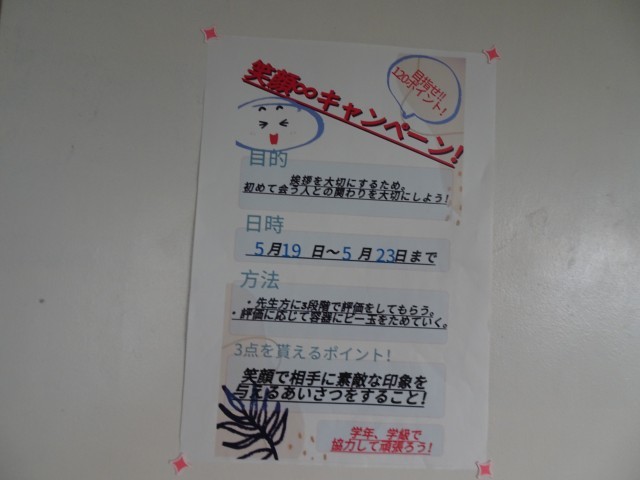 笑顔∞キャンペーン!
目指せ!!
120ポイント!
目的
挨拶を大切にするため。
初めて会う人との関わりを大切にしよう!
日時
5月19日～5月23日まで
方法
・先生方に3段階で評価をしてもらう。
・評価に応じて容器にビー玉をためていく。
3点を貰えるポイント!
笑顔で相手に素敵な印象を
与えるあいさつをすること!
学年、学級で
協力して頑張ろう!